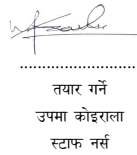 तयार गर्ने
उपमा कोइराला
स्टाफ नर्स